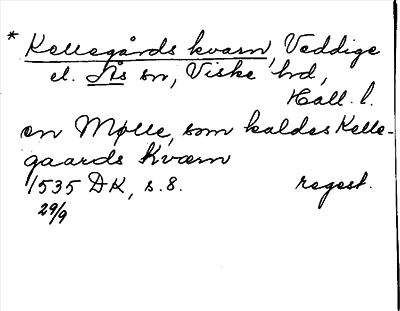 * Kellegårds kvarn, Veddige
el. Ås sn, Viske hrd,
Hall. l.
en Mølle, som kaldes Kelle-
gaards Kværn
1535 DK, s. 8. regest.
29/9